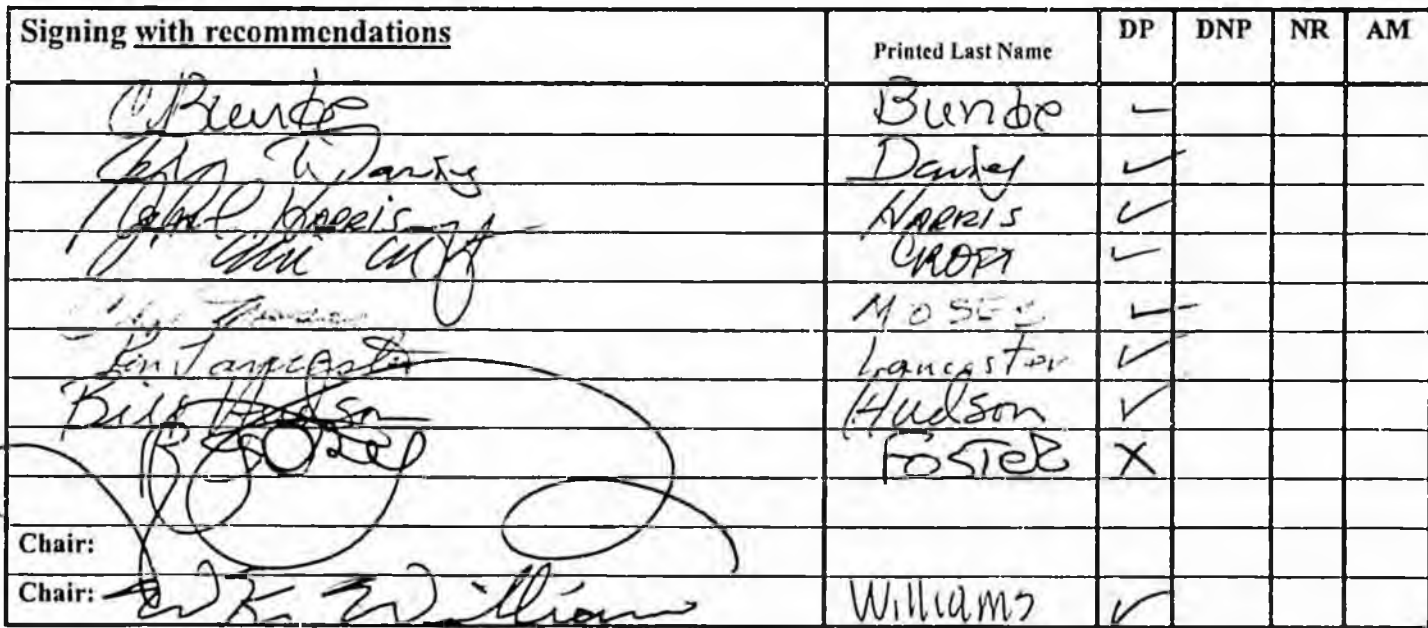 Signing with recommendations Printed Last Name DP DNP NR AM
C Bunde Bunde ✓
John Davies Davies ✓
John L. Harris HARRIS ✓
Chris Croft CROFT ✓
MOSES ✓
Ken Lancaster Lancaster ✓
Bill Hudson Hudson ✓
R Foster FOSTER X
Chair:
Chair: W K Williams Williams ✓